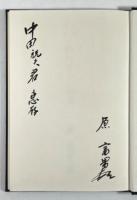 中田祝夫君
恵存
原 富男